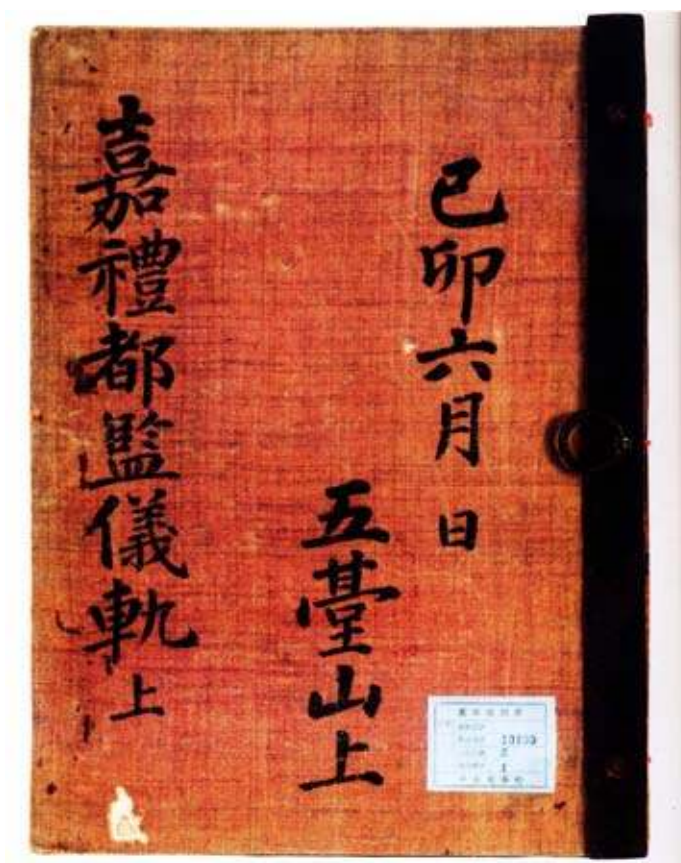 己卯六月 日
五臺山上
嘉禮都監儀軌 上